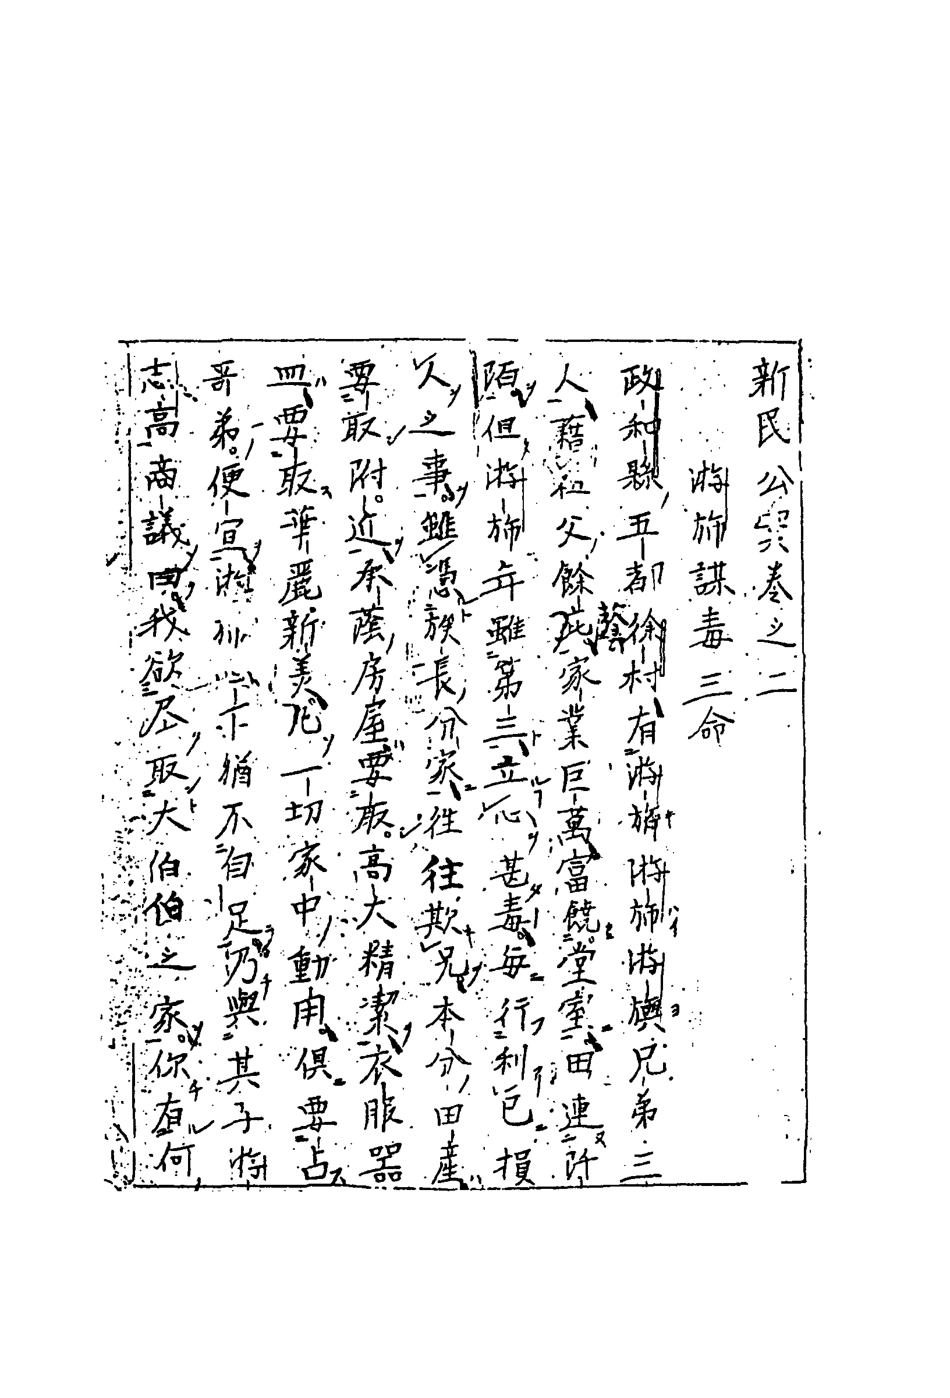 新民公案卷之二
游旆謀毒三命
政和縣五都徐村有游旂游旆游旟兄弟三
人藉祖父餘庇家業巨萬富饒堂室田連阡
陌但游旆年雖第三立心甚毒每行利己損
人之事雖憑族長分家往往欺兄本分田產
要取附近承蔭房屋要取高大精潔衣服器
皿要取華麗新美凡一切家中動用俱要占
哥弟便宜游旆猶不自足乃與其子游
志高商議曰我欲尽取大伯伯之家你有何